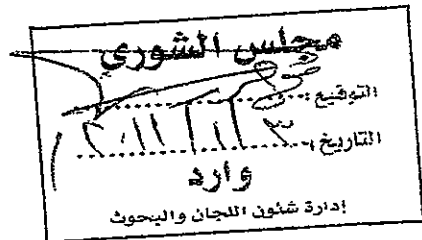 مجلس الشورى
التوقيع:
التاريخ:
وارد
إدارة شئون اللجان والبحوث